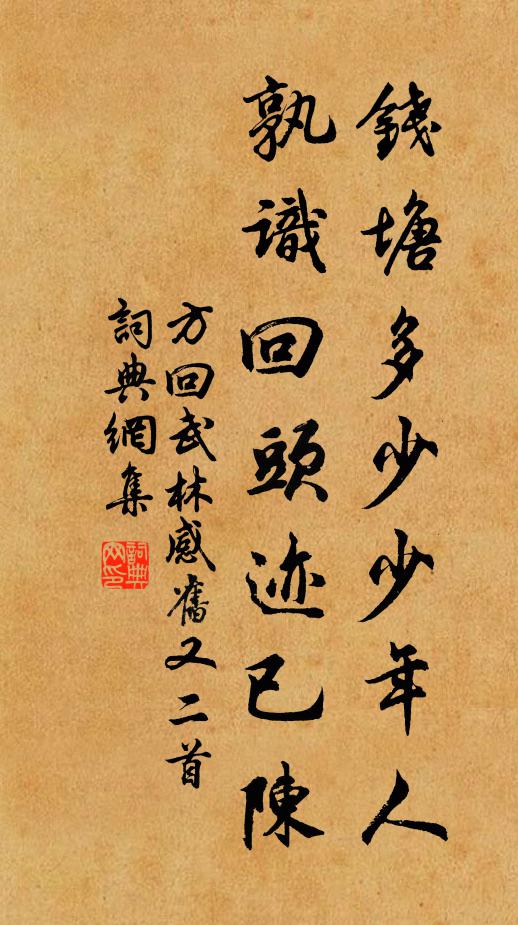 錢塘多少少年人
孰識回頭迹已陳
方回武林感舊又二首
詞典網集
詞典
网印